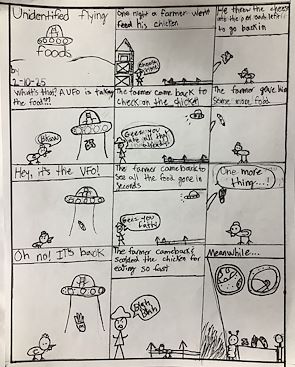 Unidentified flying
foods
by
2-10-25
One night a farmer went
feed his chicken
He threw the cheese
into the pen and left
to go back in
What's this? A UFO is taking
the food!?!
The farmer came back to
check on the chicken
Geez you
ate all that
The farmer gave him
some more food
Hey, it's the UFO!
The farmer came back to
see all the food gone in
seconds
Geez you
fatty
One more
thing...!
Oh no! IT'S back
The farmer came back &
scolded the chicken for
eating so fast
Blah
blah
Meanwhile...